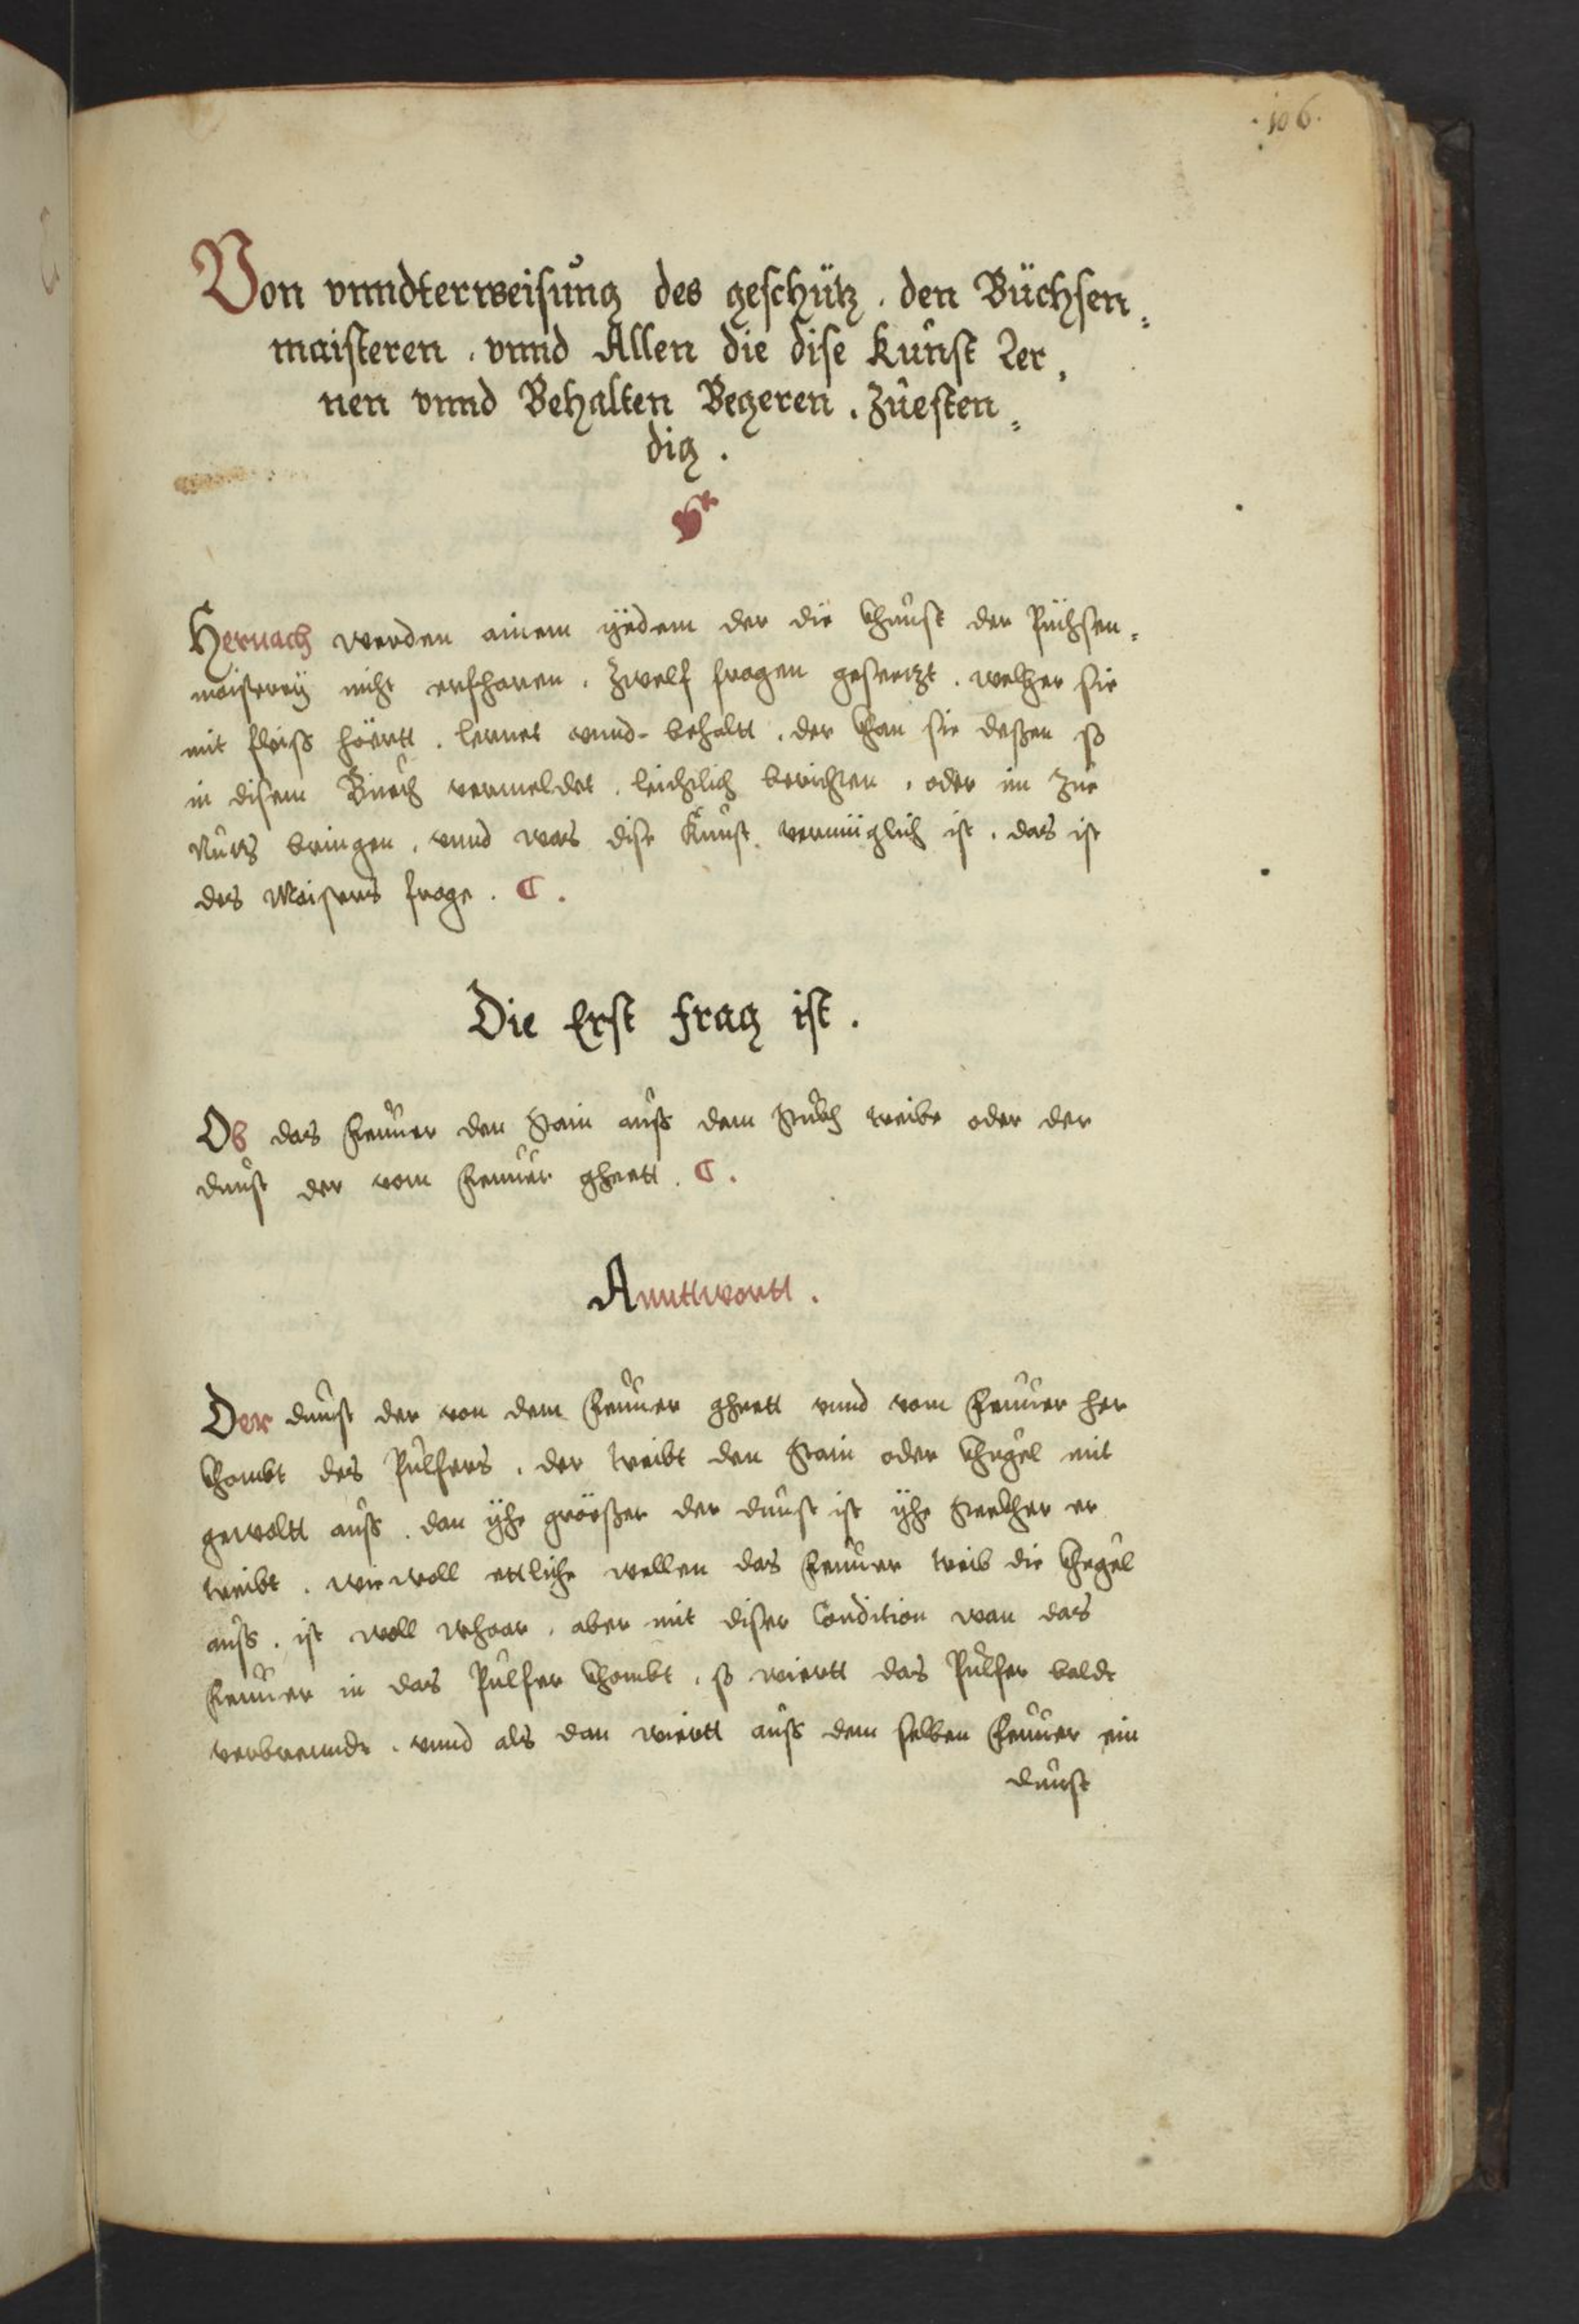 .106.
Von vnndterweisung des geschütz . den Büchsen„
maisteren . vnnd Allen die dise kunst Ler„
nen vnnd Behalten Begeren . Zuesten„
dig .
Hernach werden ainem yedem der die Khunst der Pühsen„
maisterey nicht erfharen . Zwelf fragen gesetzt . welcher sie
mit fleiss höertt . lernet vnnd behaltt . der khan sie dessen so
in disem Buech vermeldet . leichtlich berichten . oder im Zue
Nutz bringen . vnnd was dise Kunst vermüglich ist . das ist
des Maisters frage . C .
Die Erst frag ist .
Ob das Feuuer den Stain auss dem Stuckh treibe oder der
dunst der vom Feuuer ghett . C .
Anntwortt .
Der dunst der von dem Feuuer ghett vnnd vom Feuuer her
khombt des Pulfers . der treibt den Stain oder khugel mit
gewaltt auss . dan yhe grösser der dunst ist yhe sterkher er
treibt . wie woll ettliche wellen das Feuuer treib die khugel
auss . ist woll whaar . aber mit diser Condition wan das
Feuuer in das Pulfer khombt . so wiertt das Pulfer balde
verbrenndt . vnnd als dan wiertt auss dem selben Feuuer ein
dunst